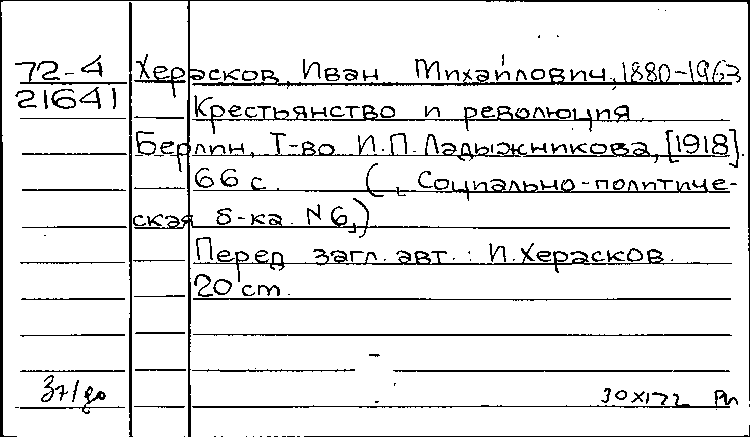 72-4 Херасков, Иван Михайлович, 1880-1963
21641 Крестьянство и революция.
Берлин, Т-во И.П. Ладыжникова, [1918].
66 с. („Социально-политиче-
ская б-ка N6„)
Перед загл. авт.: И. Херасков.
20 cm.
30X172